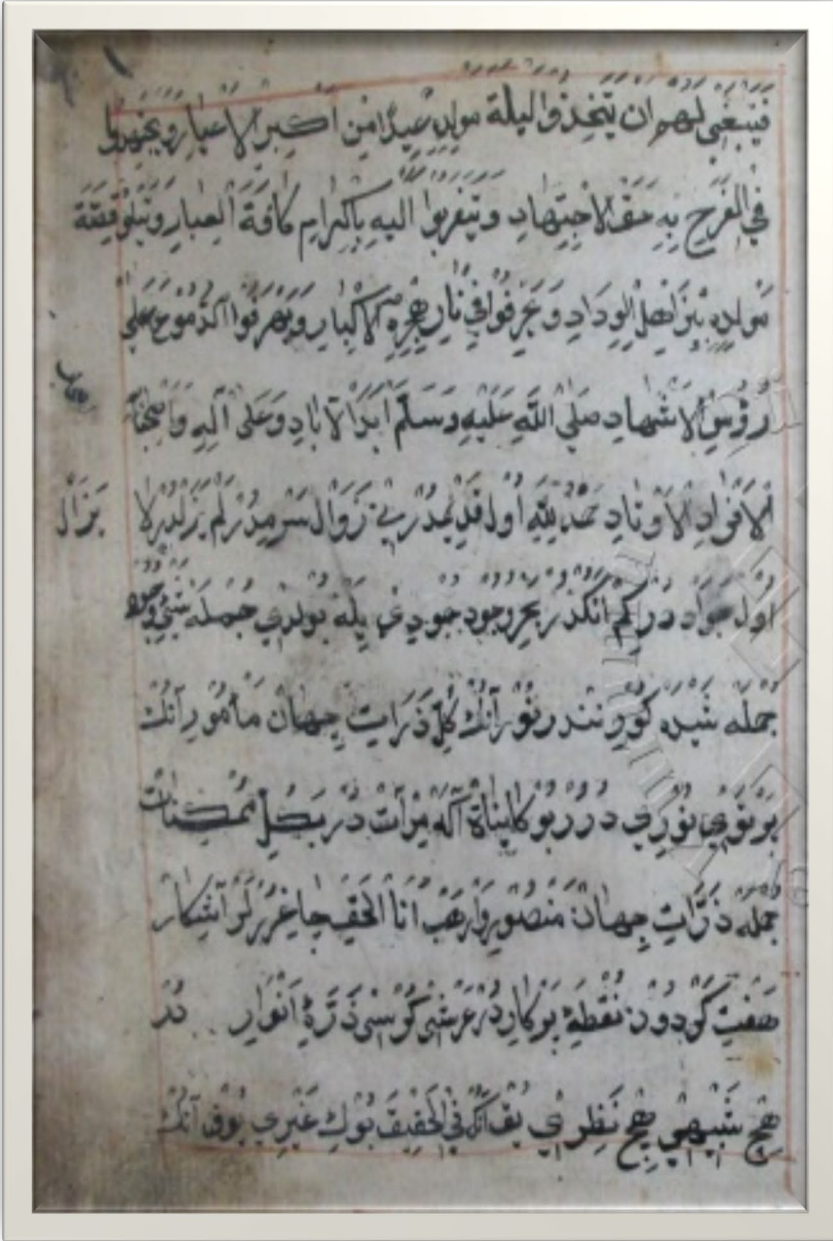 فَيَنْبَغِي لَهُمْ اَنْ يَتَّخِذُوا لَيْلَةَ مَوْلِدِهِ عِيدًا مِنْ اَكْبَرِ الْاَعْيَادِ وَيَجْتَهِدُوا
فِي الْفَرَحِ بِهِ حَقَّ الْاِجْتِهَادِ وَيَتَقَرَّبُوا اِلَيْهِ بِاِكْرَامِ كَافَّةِ الْعِبَادِ وَيَتْلُوا قِصَّةَ
مَوْلِدِهِ بَيْنَ اَهْلِ الْوِدَادِ وَ فِي نَارِ هَجْرِهِ الْاَكْبَادِ وَيُهْرِقُوا الدُّمُوعَ عَلَى
رُؤُسِ الْاَشْهَادِ صَلَّى اللَّهُ عَلَيْهِ وَسَلَّمَ اَبَدَ الْاٰبَادِ وَعَلَى اٰلِهِ وَاَصْحَابِهِ
الْاَفْرَادِ الْاَوْتَادِ اول قديمدر بي زوال سرمدر لم يزلدر لا يزال
اول جواد در كم انكدر بحر وجود جودي يله بولدي جمله شئ وجود
جمله شيده كورينندر نور آنك كل ذرات جهان مأمور آنك
پرتوي نوري دررر بو كاينات آكه مرآت در بكل ممكنات
جمله ذرات جهان منصور وار هب انا الحق چاغررلر آشكار
هفت كردون نقطهٔ پركاردر عرش كرسى ذرهٔ انوار در
هيچ شبيهي هيچ نظيري يق آنك في الحقيقه بوك غيري يوق آنك